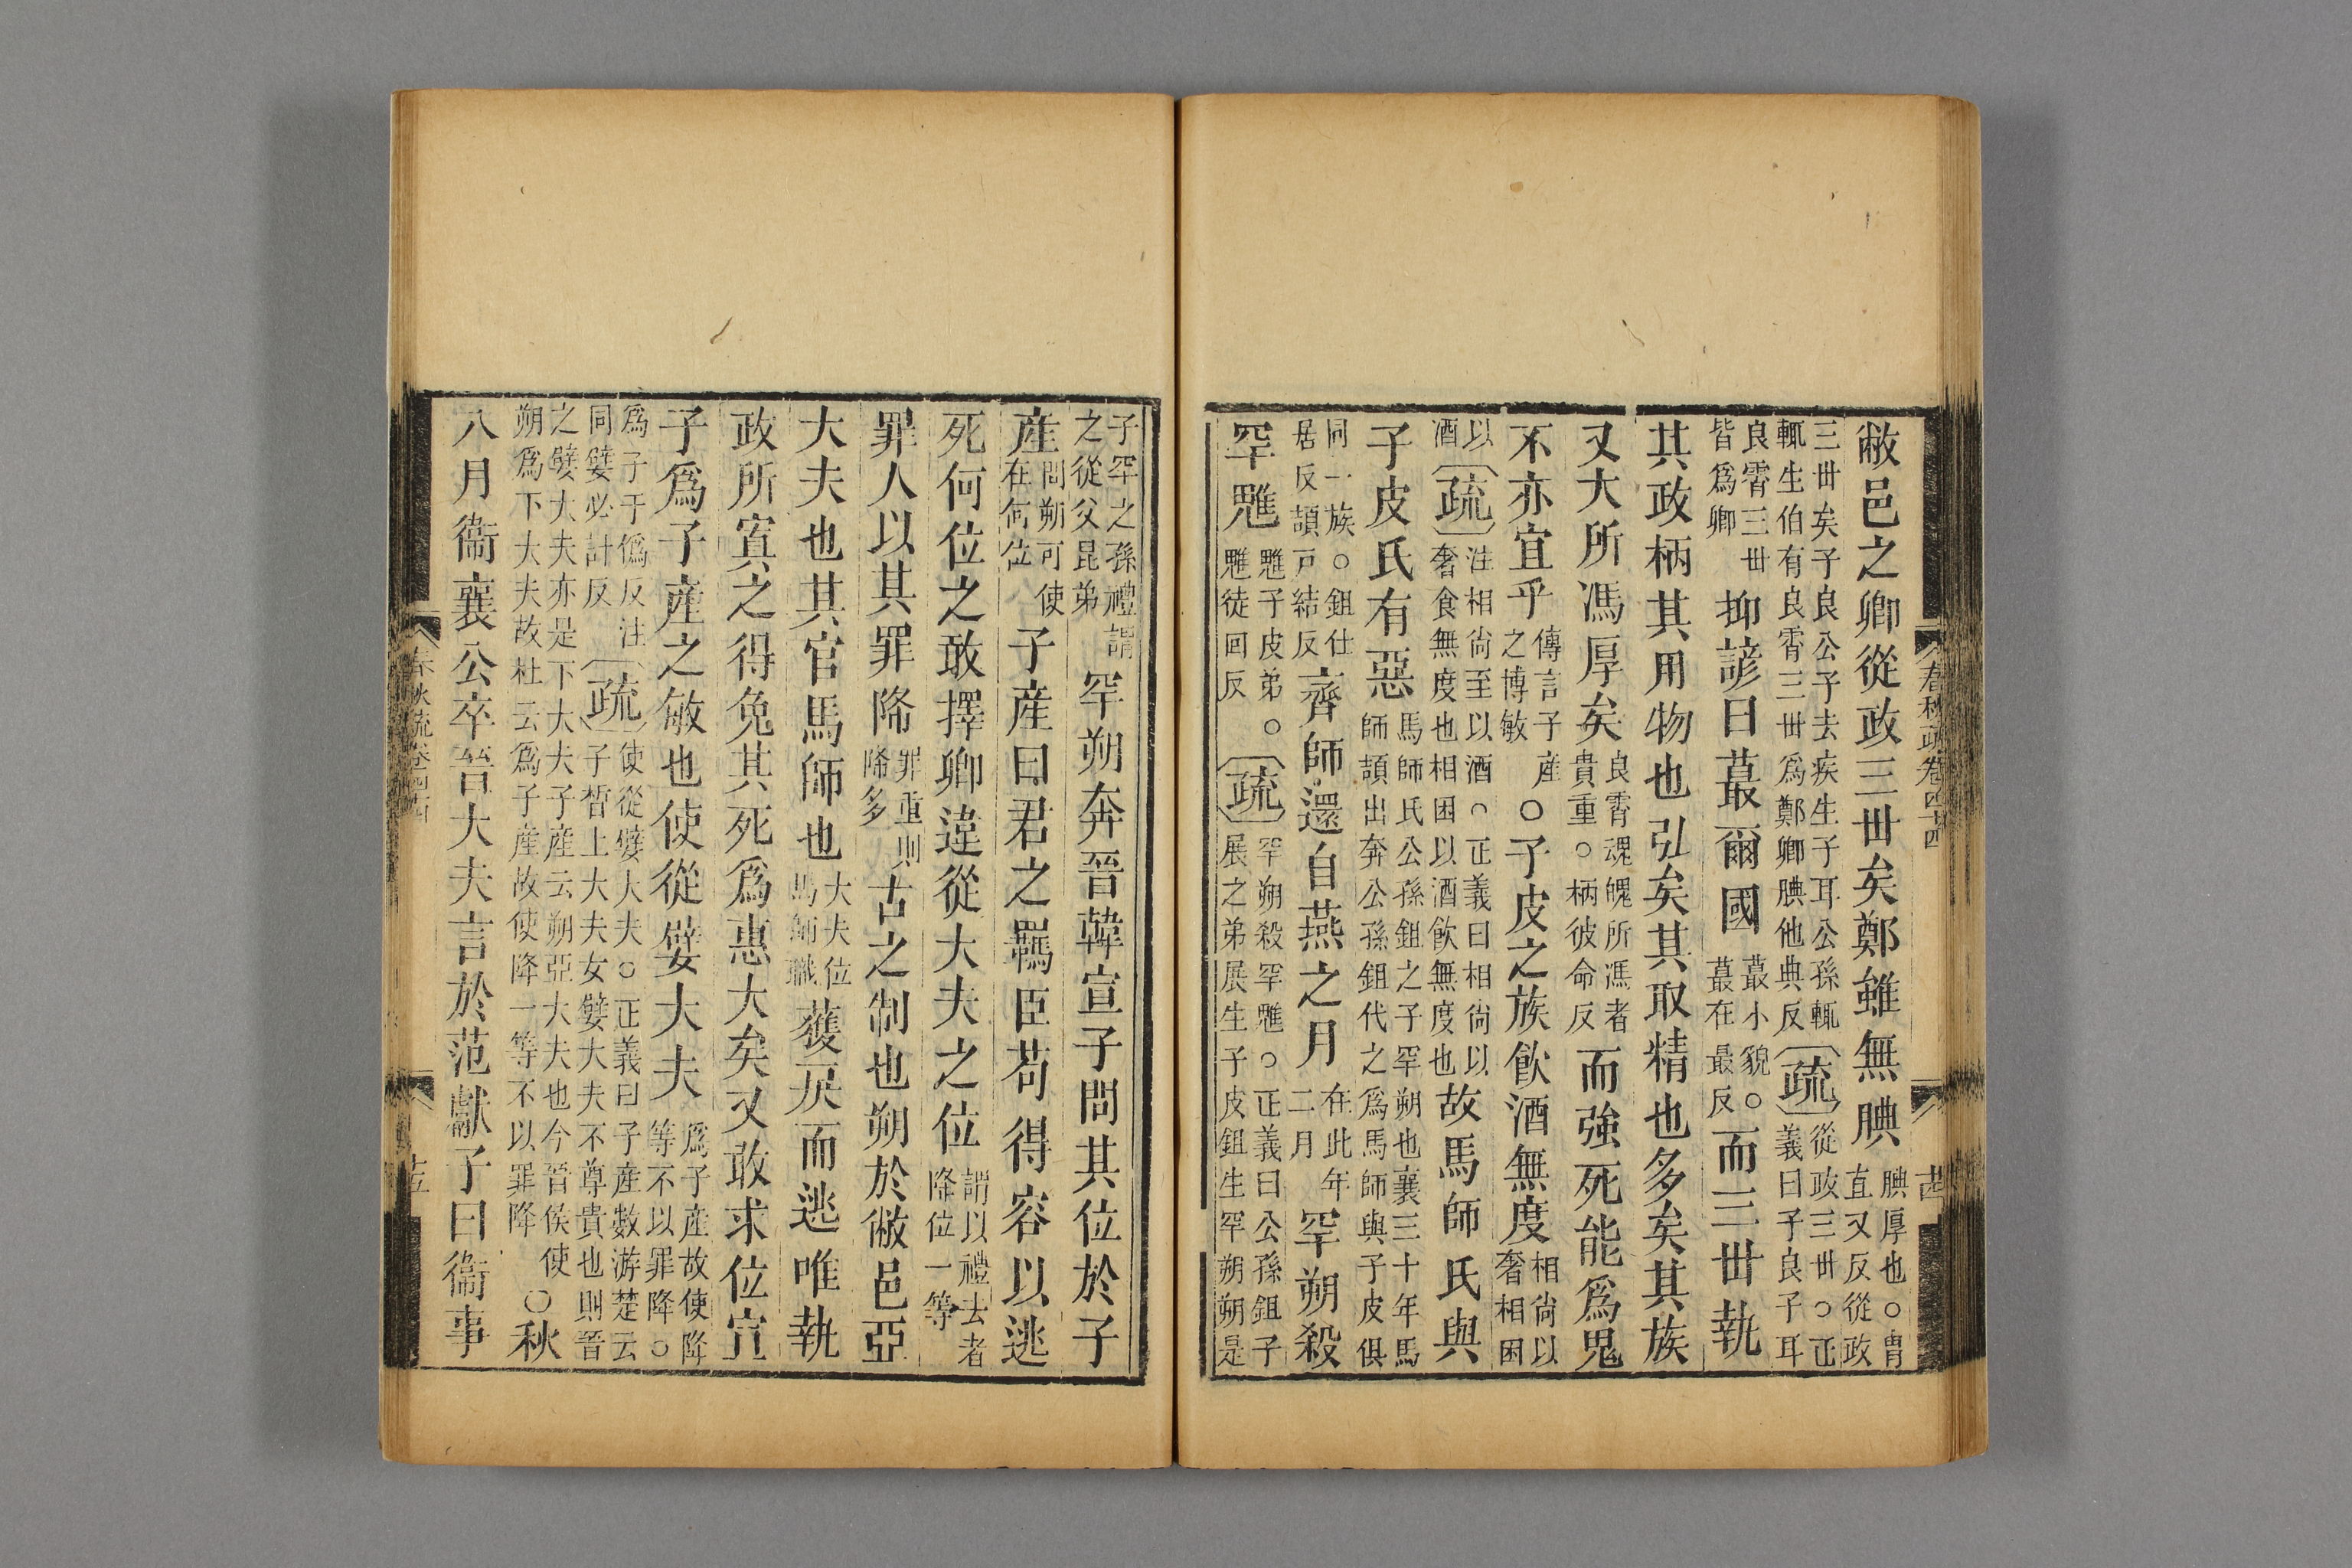 敝邑之卿從政三丗矣鄭雖無腆腆厚也○冑直又反從政
三丗矣子良公子去疾生子耳公孫輒輒生伯有良霄三丗爲鄭卿腆他典反〔疏〕從政三丗○正義曰子良子耳
良霄三丗皆爲卿抑諺曰蕞爾國蕞小貌○蕞在最反而三丗執
其政柄其用物也弘矣其取精也多矣其族
又大所馮厚矣良霄魂魄所馮者貴重○柄彼命反而強死能爲鬼
不亦宜乎傳言子產之博敏○子皮之族飲酒無度相尙以奢相困
以酒〔疏〕注相尙至以酒○正義曰相尙以奢食無度也相困以酒飲無度也故馬師氏與
子皮氏有惡馬師氏公孫鉏之子罕朔也襄三十年馬師頡出奔公孫鉏代之爲馬師與子皮俱
同一族○鉏仕居反頡戸結反齊師還自燕之月在此年二月罕朔殺
罕魋魋子皮弟○魋徒回反〔疏〕罕朔殺罕魋○正義曰公孫鉏子展之弟展生子皮鉏生罕朔朔是
春秋疏卷四十四
十四
子罕之孫禮謂之從父昆弟罕朔奔晉韓宣子問其位於子
產問朔可使在何位子產曰君之羈臣苟得容以逃
死何位之敢擇卿違從大夫之位謂以禮去者降位一等
罪人以其罪降罪重則降多古之制也朔於敝邑亞
大夫也其官馬師也大夫位馬師職獲戾而逃唯執
政所寘之得免其死爲惠大矣又敢求位宣
子爲子產之敏也使從嬖大夫爲子產故使降等不以罪降○
爲子于僞反注同嬖必計反〔疏〕使從嬖大夫○正義曰子產數游楚云子皙上大夫女嬖大夫不尊貴也則晉
之嬖大夫亦是下大夫子產云朔亞大夫也今晉侯使朔爲下大夫故杜云爲子產故使降一等不以罪降○秋
八月衞襄公卒晉大夫言於范獻子曰衞事
春秋疏卷四十四
十五